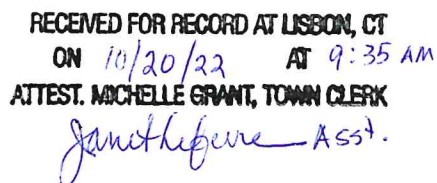 RECEIVED FOR RECORD AT LISBON, CT
ON 10/20/22 AT 9:35 AM
ATTEST. MICHELLE GRANT, TOWN CLERK
Janet Lefevre Asst.